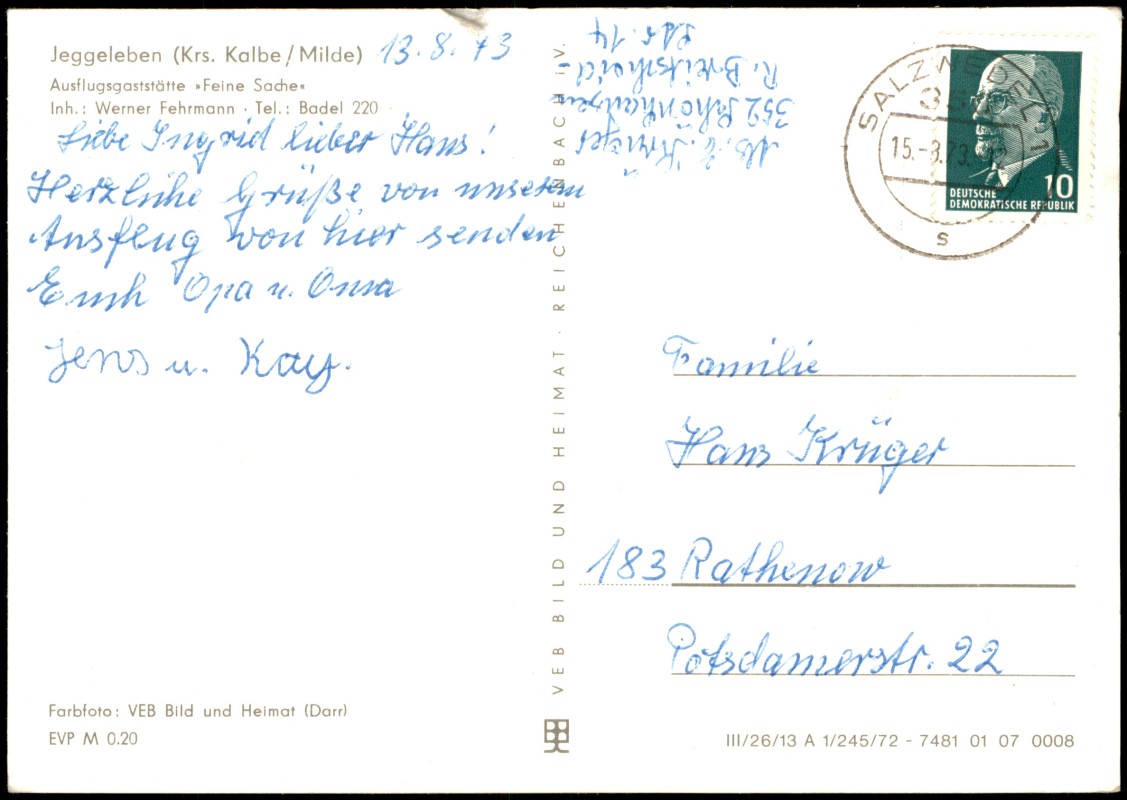 Jeggeleben (Krs. Kalbe/Milde) 13.8.73
Ausflugsgaststätte »Feine Sache«
Inh.: Werner Fehrmann · Tel.: Badel 220
Liebe Ingrid lieber Hans!
Herzliche Grüße von unserem
Ausflug von hier senden
Euch Opa u. Oma
Jens u. Kay.
Farbfoto: VEB Bild und Heimat (Darr)
EVP M 0.20
VEB BILD UND HEIMAT · REICHENBACH i.V.
Krüger
352 Schönhausen
R. Breitscheid-
Str. 14
SALZWEDEL 1
15.-8.73.-12
S
DEUTSCHE
DEMOKRATISCHE REPUBLIK
10
Familie
Hans Krüger
183 Rathenow
Potsdamerstr. 22
III/26/13 A 1/245/72 - 7481 01 07 0008